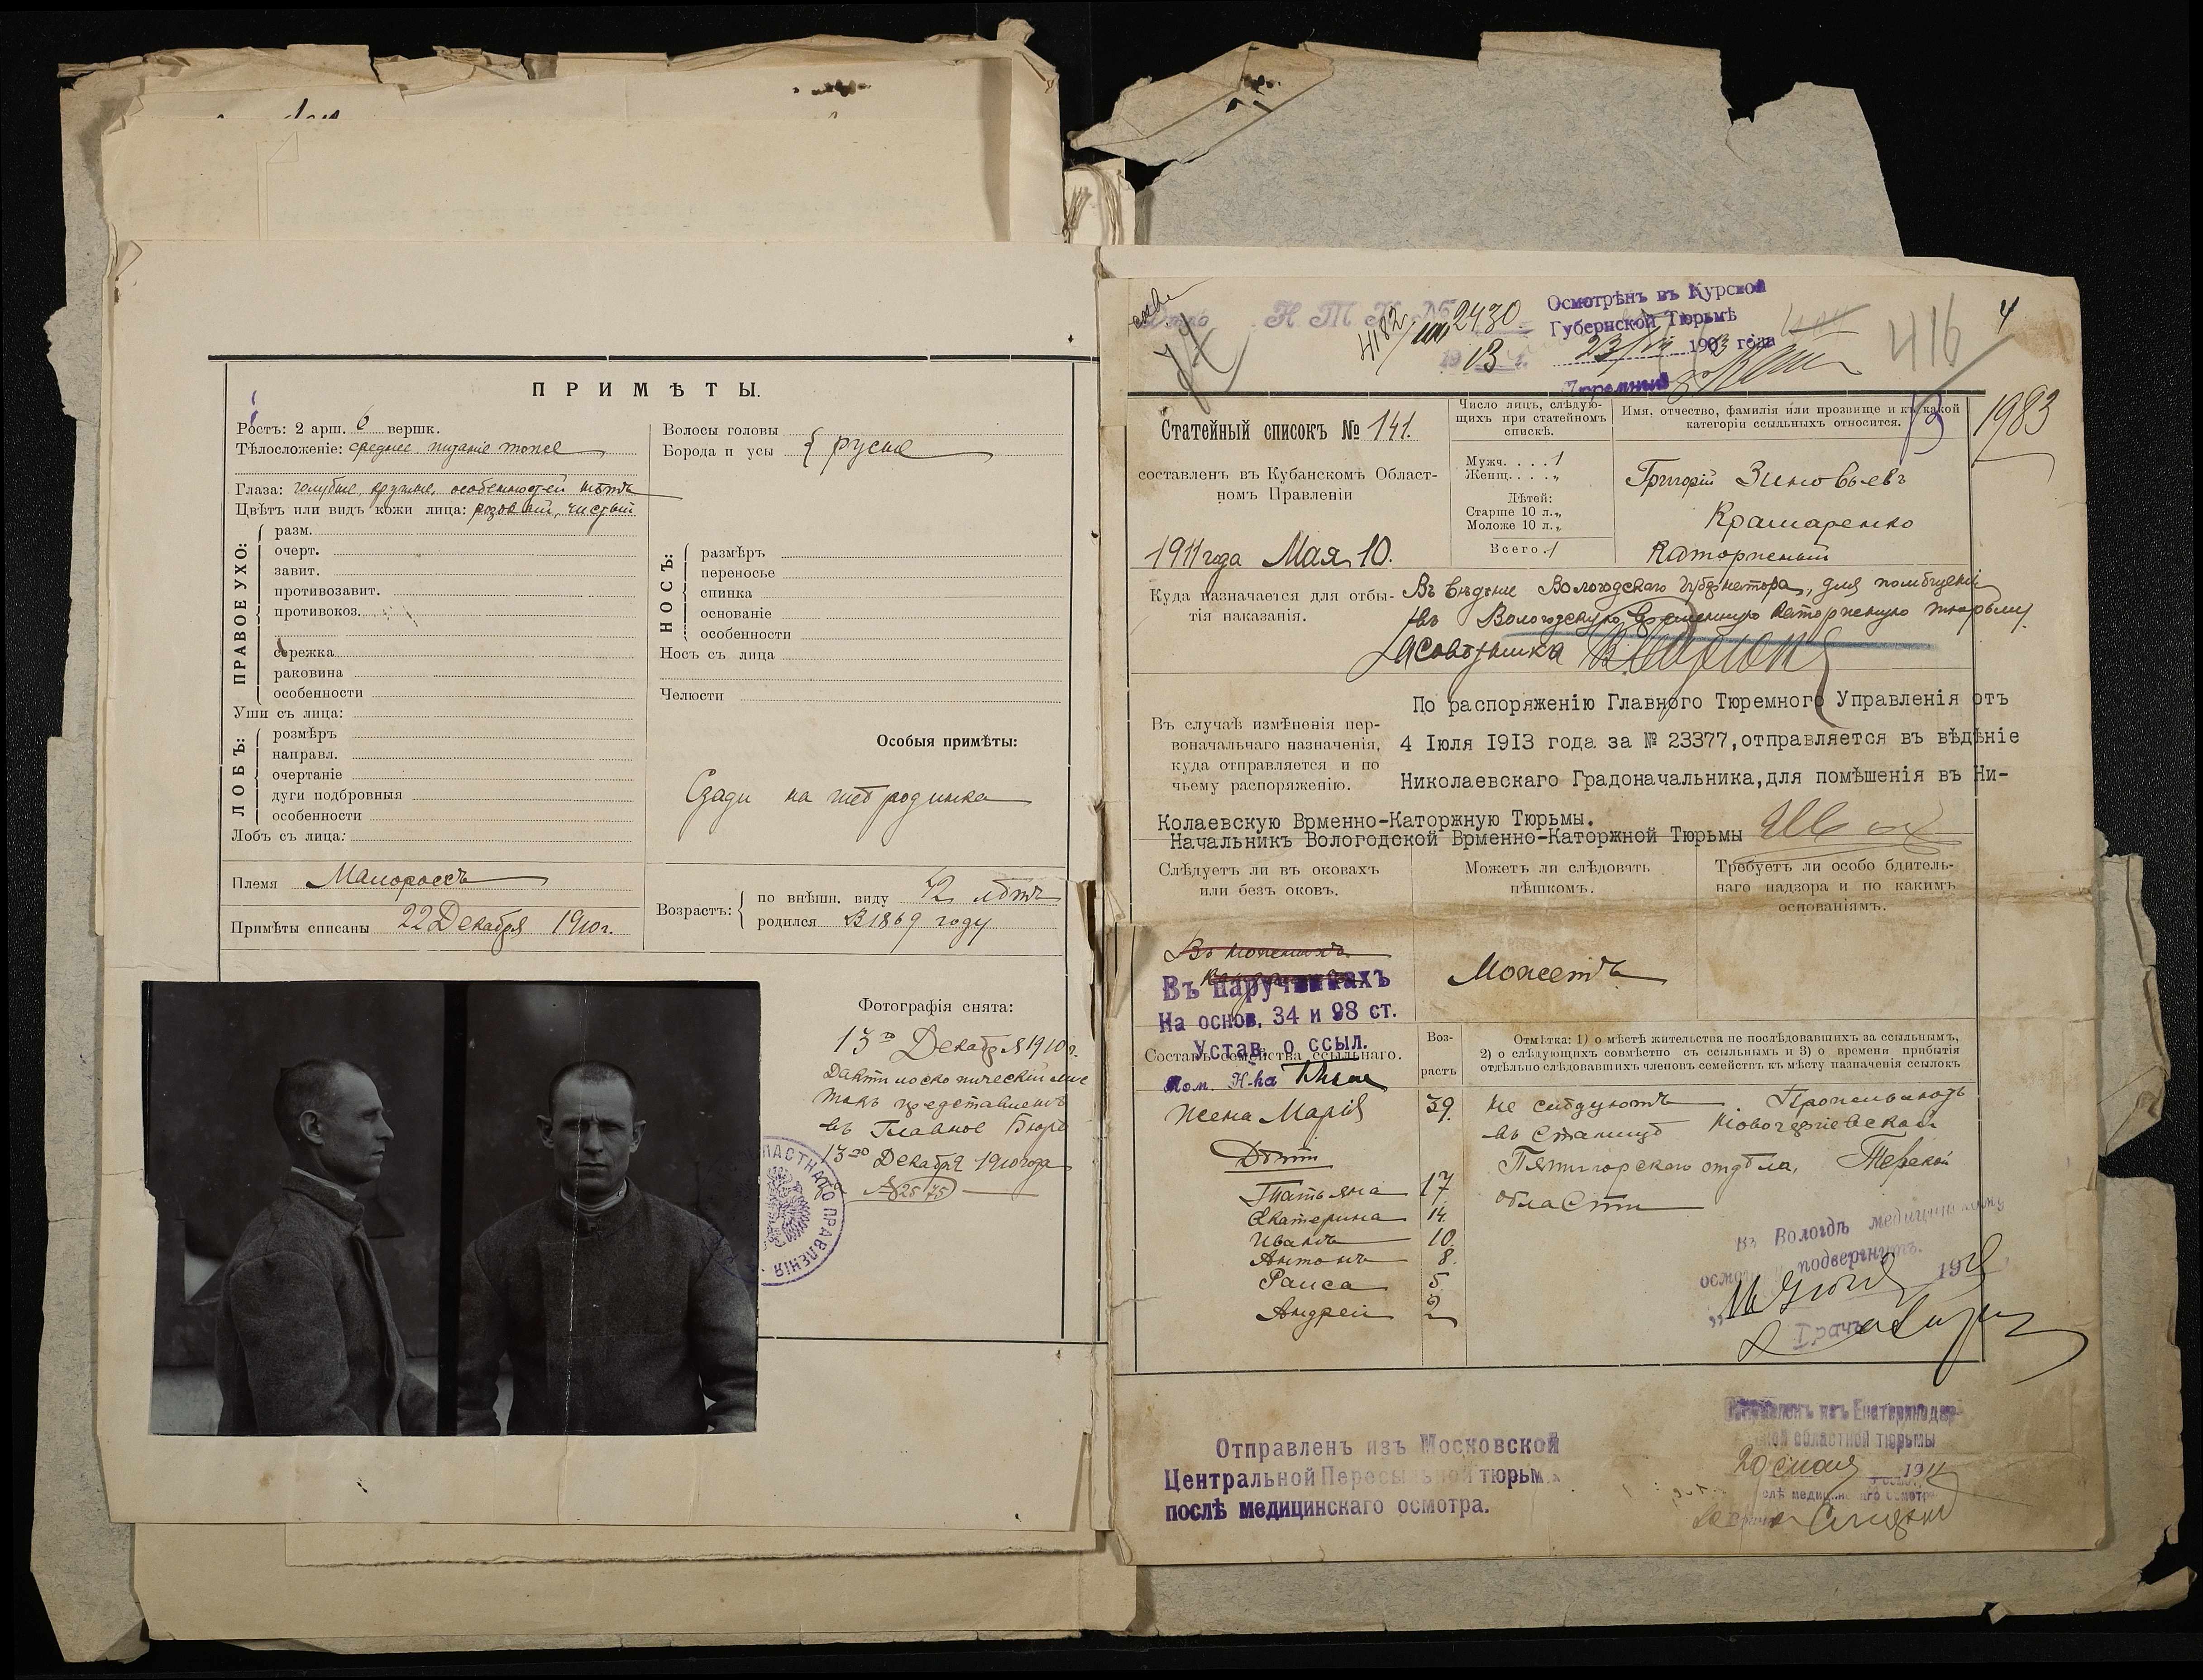 ПРИМѢТЫ.
Ростъ: 2 арш. 6 вершк.
Тѣлосложеніе: среднее питаніе тоже
Глаза: голубые, круглые, особенностей нѣтъ
Цвѣтъ или видъ кожи лица: розовый, чистый
ПРАВОЕ УХО:
разм.
очерт.
завит.
противозавит.
противокоз.
сережка
раковина
особенности
Уши съ лица:
ЛОБЪ:
розмѣръ
направл.
очертаніе
дуги подбровныя
особенности
Лобъ съ лица:
Племя Малороссъ
Примѣты списаны 22 Декабря 1910 г.
Волосы головы
Борода и усы
русые
НОСЪ:
размѣръ
переносье
спинка
основаніе
особенности
Носъ съ лица
Челюсти
Особыя примѣты:
Сзади на шеѣ родинка
Возрастъ:
по внѣшн. виду 42 лѣтъ
родился В 1869 году
Фотографія снята:
13го Декабря 1910 г.
Дактилоскопическій лис
токъ представленъ
въ Главное Бюро
13го Декабря 1910 года
№ 2575
ЛАСТНАГО ПРАВЛЕНІЯ
№ 2430
4182
1913
Осмотрѣнъ въ Курской
Губернской Тюрьмѣ
23/VII 1903 года
Тюремный
416
4
1983
Статейный списокъ № 141.
составленъ въ Кубанскомъ Област-
номъ Правленіи
1911 года Мая 10.
Число лицъ, слѣдую-
щихъ при статейномъ
спискѣ.
Мужч. . . . 1
Женщ. . . . „
Дѣтей:
Старше 10 л. „
Моложе 10 л. „
Всего . 1
Имя, отчество, фамилія или прозвище и къ какой
категоріи ссыльныхъ относится.
Григорій Зиновьевъ
Крамаренко
Каторжный
Куда назначается для отбы-
тія наказанія.
Въ вѣдѣніе Вологодскаго Губернатора, для помѣщенія
въ Вологодскую временную каторжную тюрьму
Въ случаѣ измѣненія пер-
воначальнаго назначенія,
куда отправляется и по
чьему распоряженію.
По распоряженію Главного Тюремного Управленія отъ
4 Іюля 1913 года за № 23377,отправляется въ вѣдѣніе
Николаевскаго Градоначальника,для помѣшенія въ Ни-
Колаевскую Врменно-Каторжную Тюрьмы.
Начальникъ Вологодской Врменно-Каторжной Тюрьмы
Слѣдуетъ ли въ оковахъ
или безъ оковъ.
Можетъ ли слѣдовать
пѣшкомъ.
Требуетъ ли особо бдитель-
наго надзора и по какимъ
основаніямъ.
Въ ножныхъ
кандалахъ
Въ наручникахъ
На основ. 34 и 98 ст.
Устав. о ссыл.
Пом. Н-ка
Можетъ
Составъ семейства ссыльнаго.
Воз-
растъ
Отмѣтка: 1) о мѣстѣ жительства не послѣдовавшихъ за ссыльнымъ,
2) о слѣдующихъ совмѣстно съ ссыльнымъ и 3) о времени прибытія
отдѣльно слѣдовавшихъ членовъ семействъ къ мѣсту назначенія ссылокъ
Жена Марія 39.
Дѣти
Татьяна 17
Екатерина 14.
Иванъ 10.
Антонъ 8.
Раиса 5
Андрей 2
Не слѣдуютъ Проживаютъ
въ станицѣ Новогеоргіевской
Пятигорскаго отдѣла, Терской
области
въ Вологдѣ медицинскому
осмот подвергнутъ.
Врачъ
Отправленъ изъ Московской
Центральной Пересыльной тюрьм
послѣ медицинскаго осмотра.
Отправленъ изъ Екатеринодар-
ской областной тюрьмы
20 мая 1911
слѣ медицинскаго осмотра